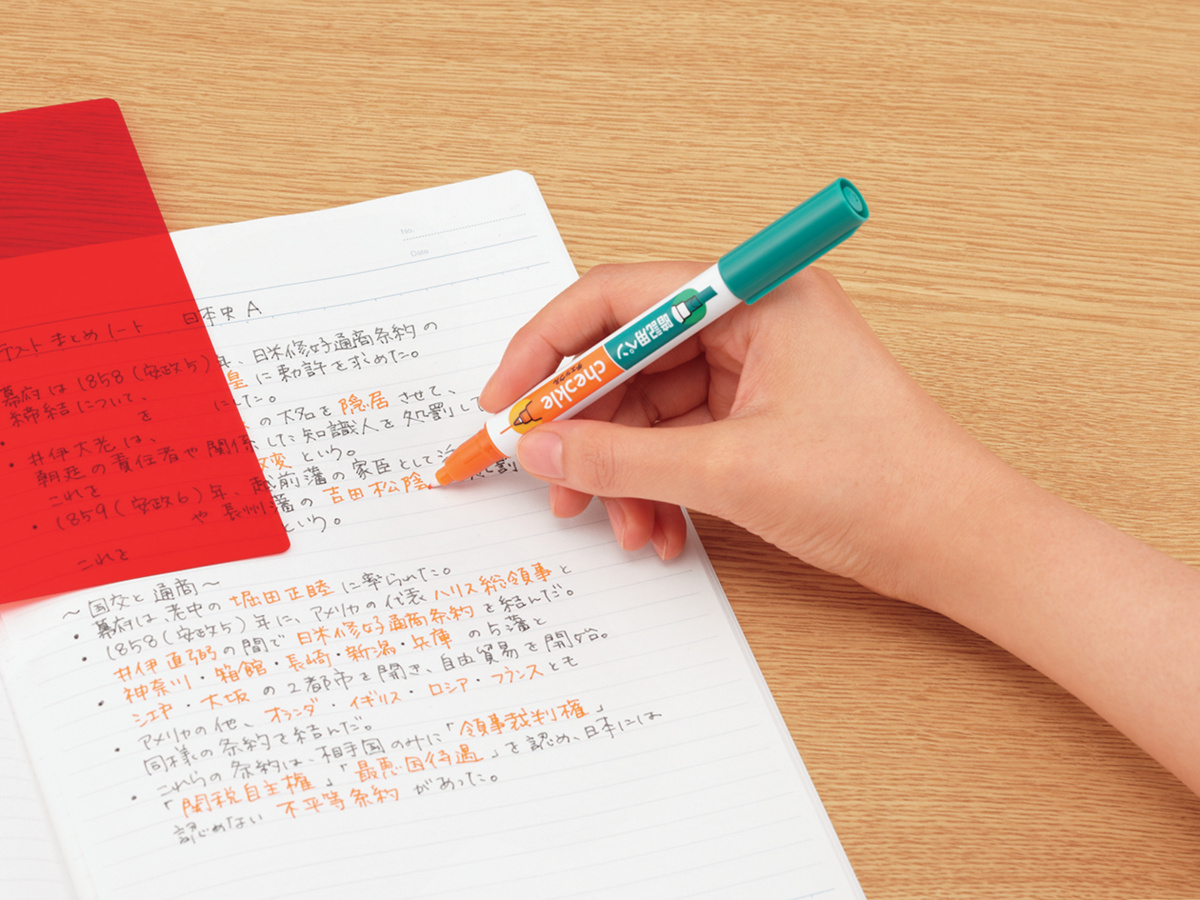 No.
Date
テストまとめノート 日本史 A
幕府は1858(安政5)年、日米修好通商条約の
締結について、皇に勅許を求めた。
を にした。
・井伊大老は、の大名を隠居させて、
朝廷の責任者や関係した知識人を処罰して
これを 変という。
・1859(安政6)年、越前藩の家臣として
や長州藩の吉田松陰
これを という。
~国交と通商~
・幕府は、老中の堀田正睦に率られた。
・1858(安政5)年に、アメリカの代表ハリス総領事と
井伊直弼の間で日米修好通商条約を結んだ。
・神奈川・箱館・長崎・新潟・兵庫の5藩と
江戸・大坂の2都市を開き、自由貿易を開始。
・アメリカの他、オランダ・イギリス・ロシア・フランスとも
同様の条約を結んだ。
・これらの条約は、相手国のみに「領事裁判権」
「関税自主権」「最恵国待遇」を認め、日本には
認めない不平等条約があった。
暗記用ペン
checkle
チェックル